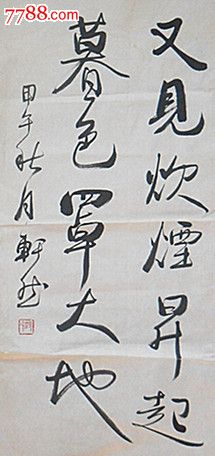 7788.com
又見炊煙昇起
暮色罩大地
甲午秋月軒然